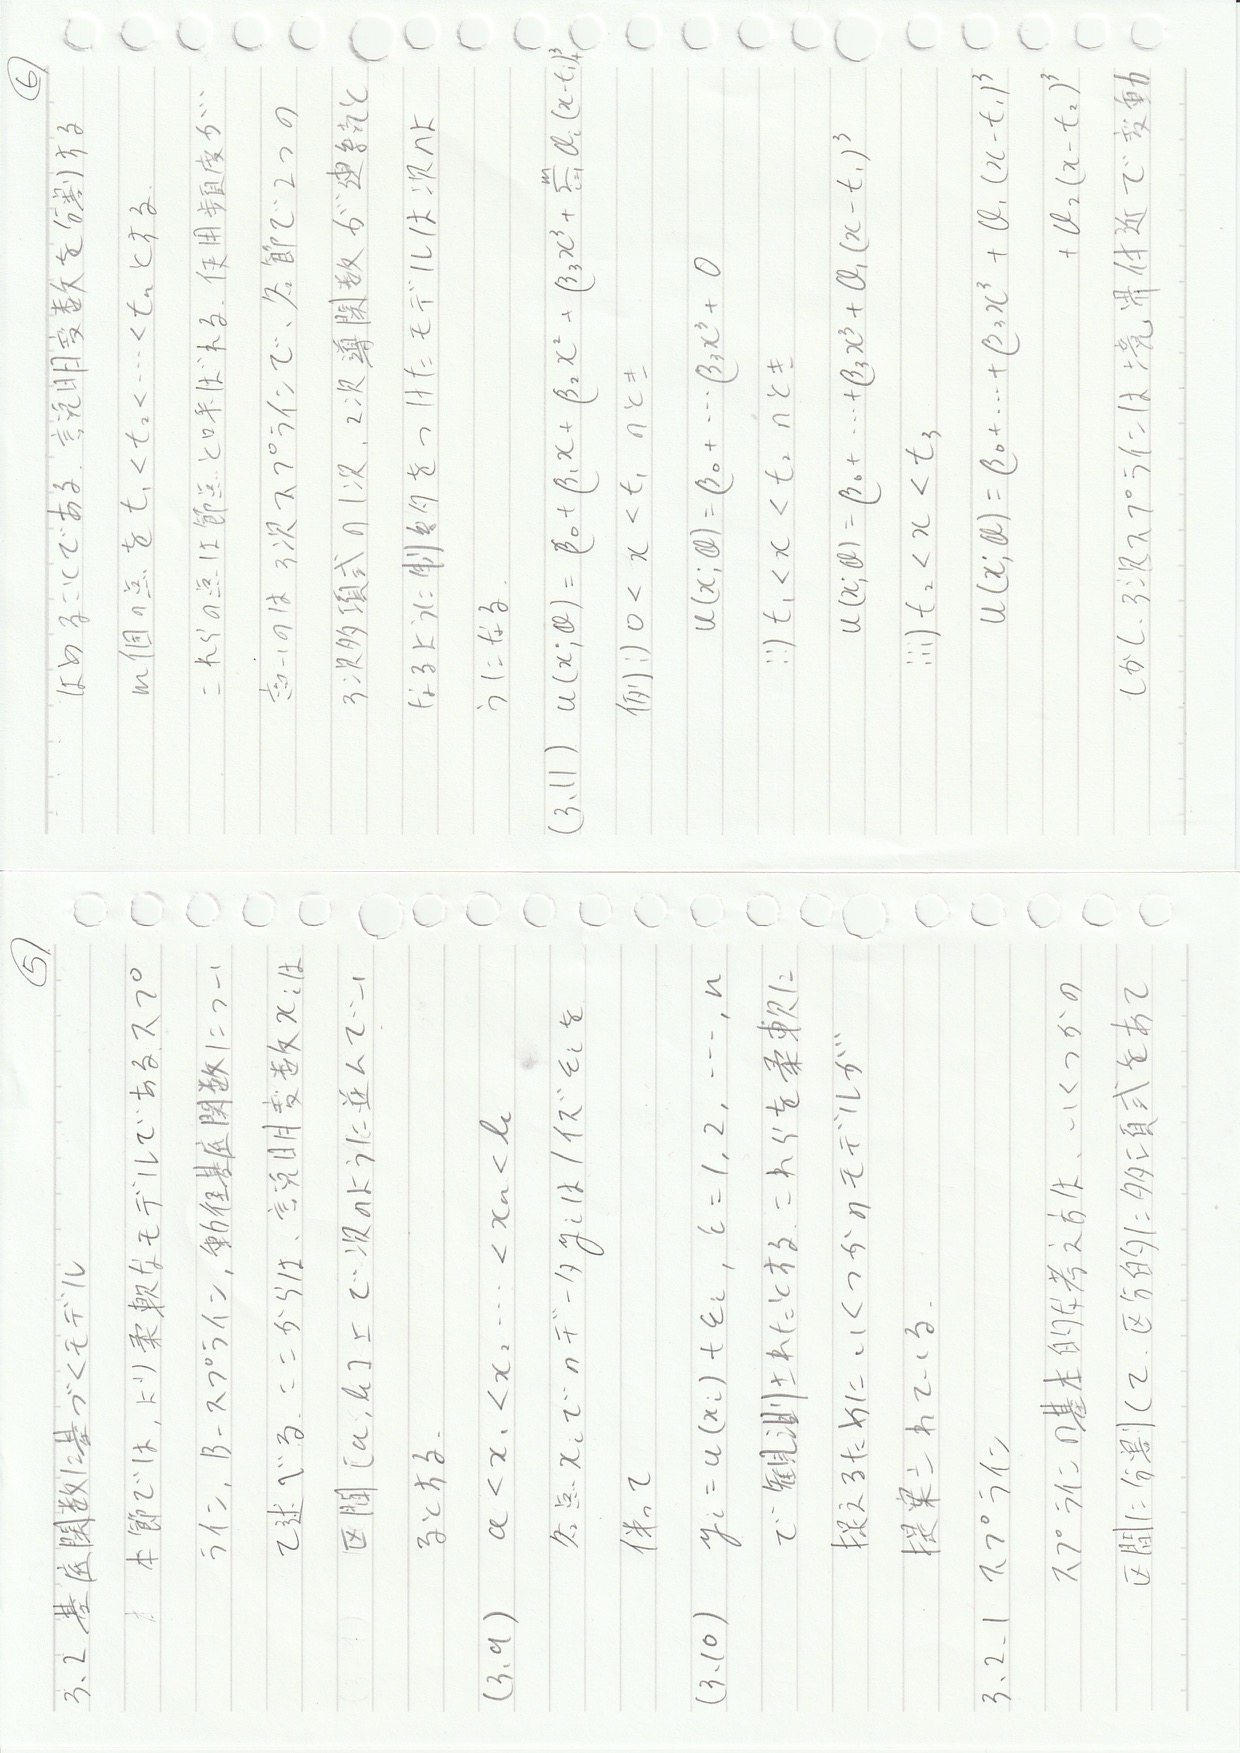 ⑤
3.2 基底関数に基づくモデル
本節では,より柔軟なモデルである.スプ
ライン, B-スプライン, 動径基底関数につい
て述べる.ここからは、説明変数xiは
区間[a,b]上で次のように並んでい
るとする.
(3.9) a < x₁ < x₂ … < xn < b
各点xiでのデータyiはノイズεiを
伴って
(3.10) yi = u(xi) + εi , i = 1, 2, …, n
で観測されたとする.これらを柔軟に
捉えるためにいくつかのモデルが
提案されている.
3.2.1 スプライン
スプラインの基本的な考え方は、いくつかの
区間に分割して、区分的に多項式をあて
⑥
はめることである.説明変数を分割する
m個の点を t₁ < t₂ < … < tn とする.
これらの点は節点と呼ばれる.使用頻度が
高いのは3次スプラインで、各節で2つの
3次多項式の1次、2次導関数が連続と
なるように制約をつけたモデルは次のよ
うになる.
(3.11) u(x;θ) = β₀ + β₁x + β₂x² + β₃x³ + Σᵢ₌₁ᵐ θi (x-ti)₊³
例) i) 0 < x < t₁ のとき
u(x;θ) = β₀ + … β₃x³ + 0
ii) t₁ < x < t₂ のとき
u(x;θ) = β₀ + … + β₃x³ + θ₁(x-t₁)³
iii) t₂ < x < t₃
u(x;θ) = β₀ + … + β₃x³ + θ₁(x-t₁)³
+ θ₂(x-t₂)³
しかし、3次スプラインは境界付近で変動